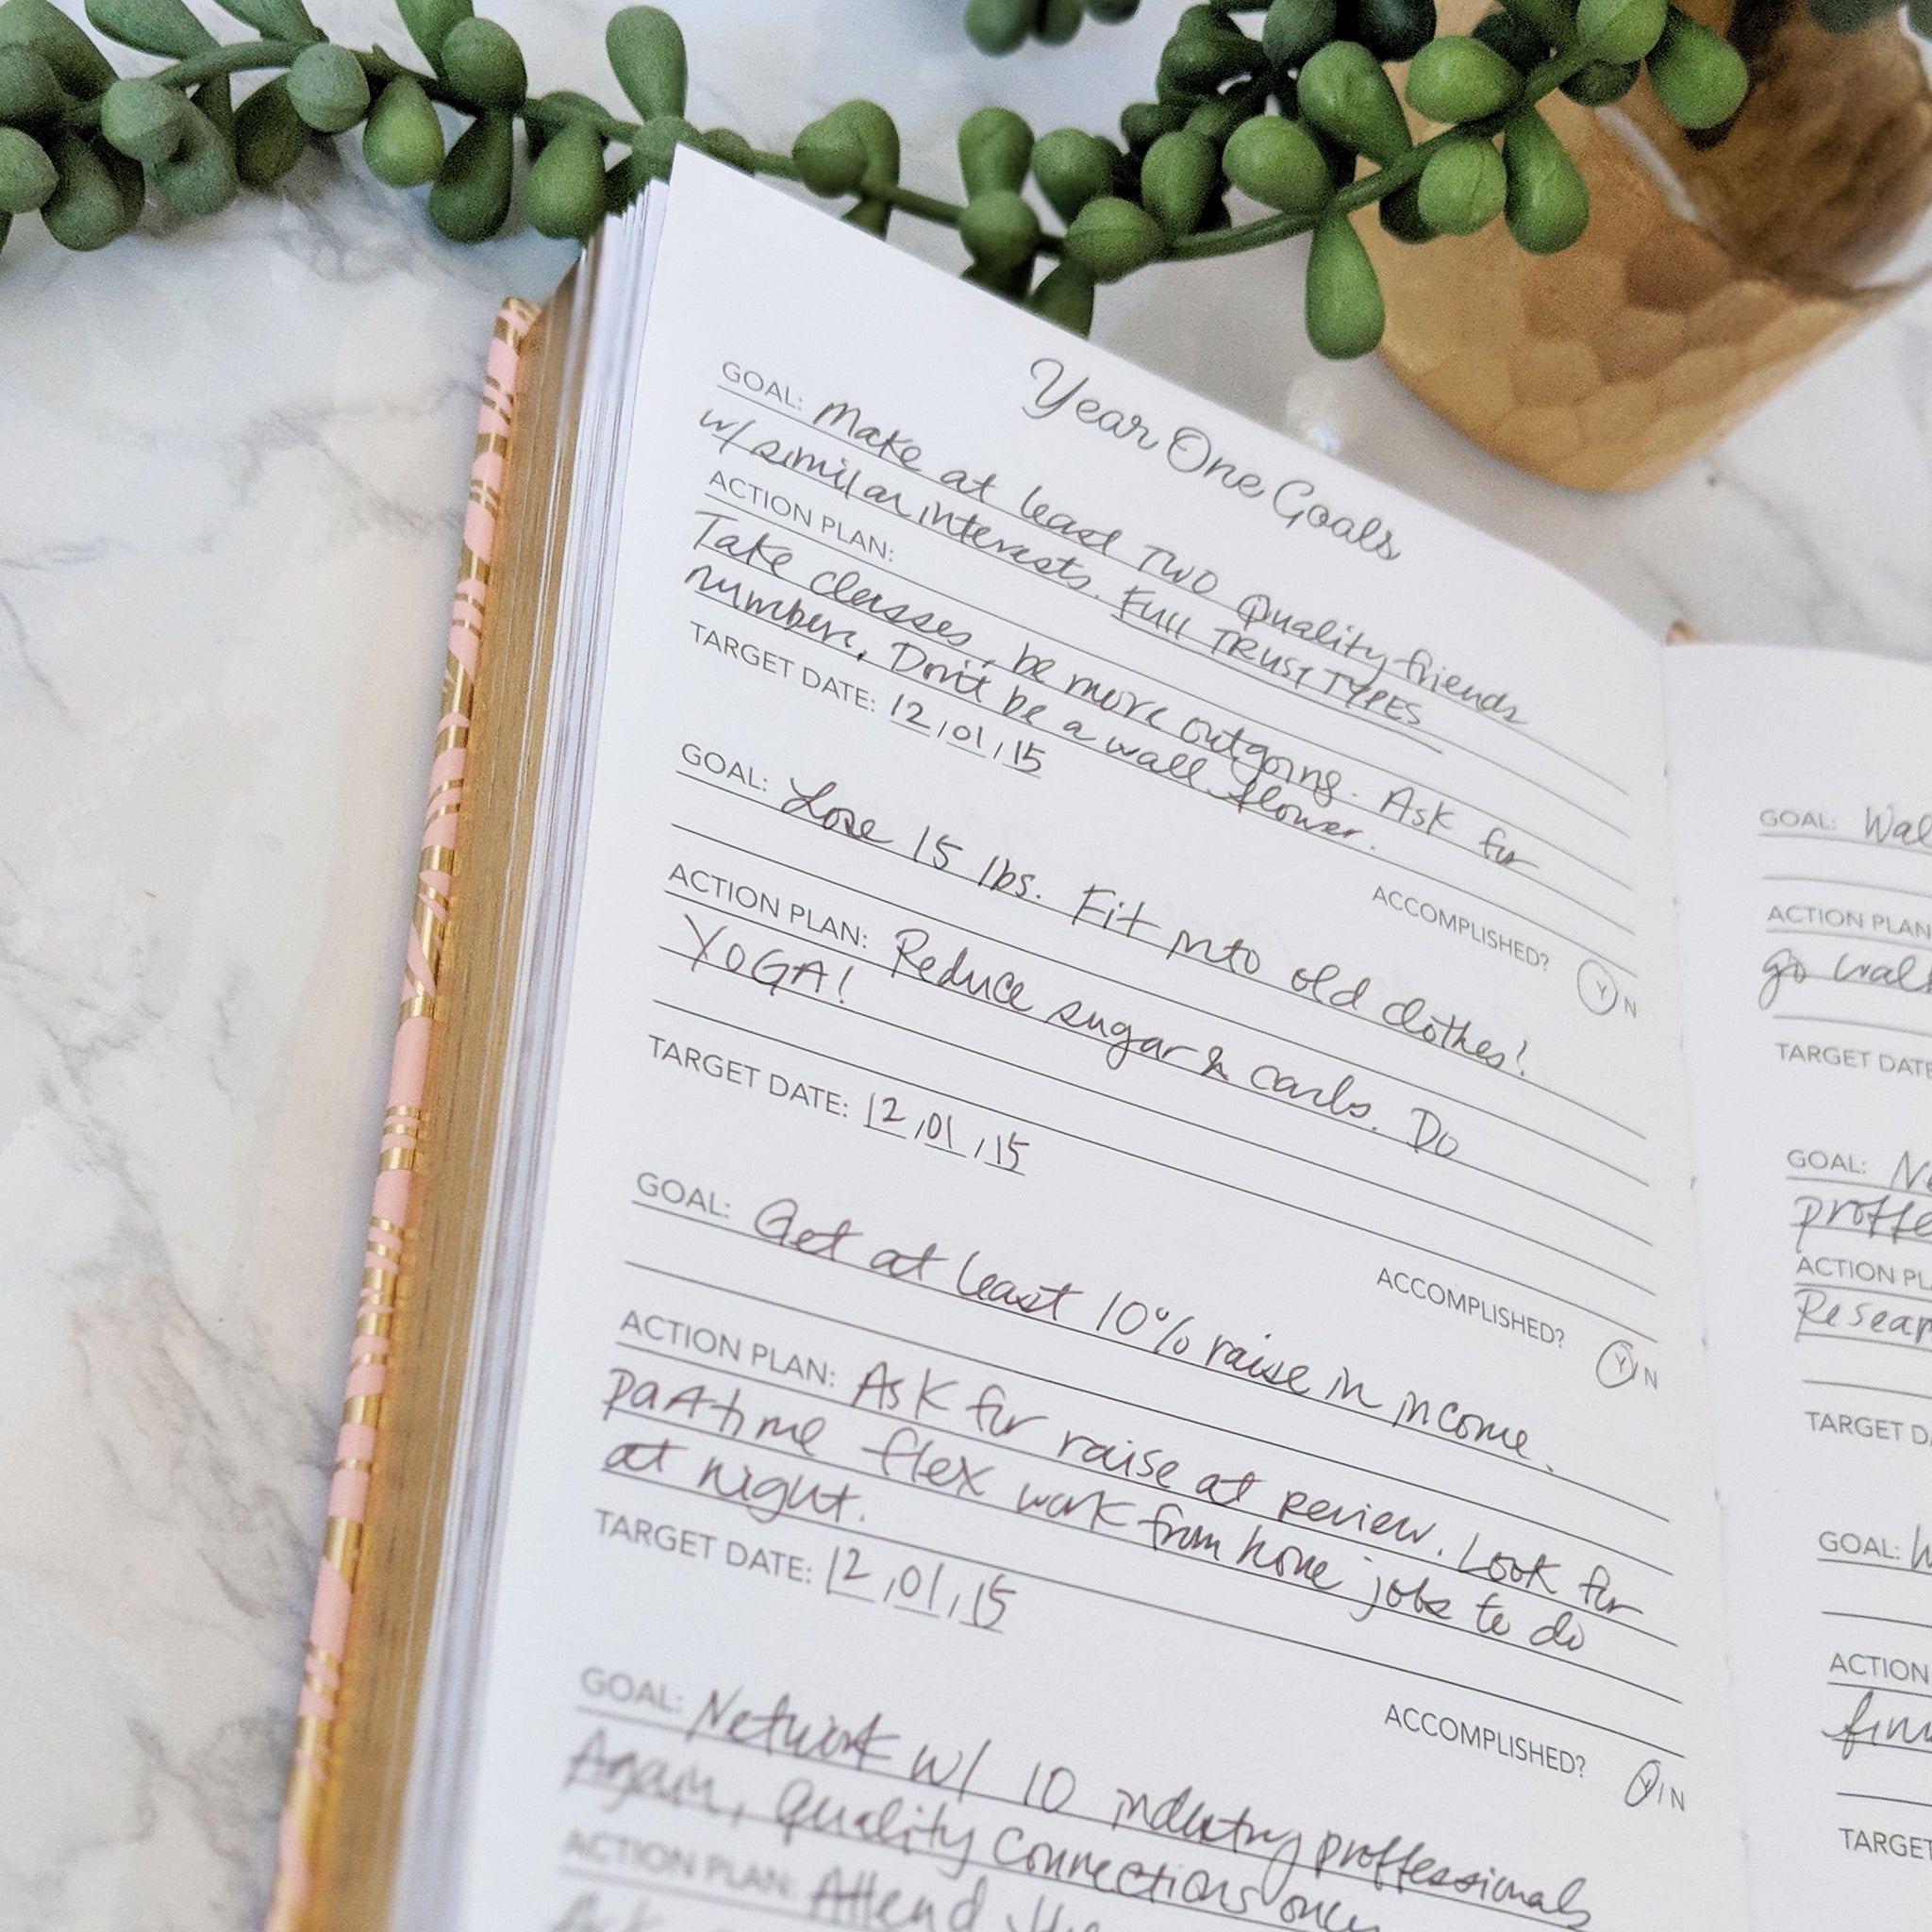 Year One Goals
GOAL: Make at least TWO Quality friends
w/ similar interests. FULL TRUST TYPES
ACTION PLAN:
Take classes, be more outgoing. Ask for
numbers. Don't be a wall flower.
TARGET DATE: 12/01/15
ACCOMPLISHED? Y/N
GOAL: Lose 15 lbs. Fit into old clothes!
ACTION PLAN: Reduce sugar & carbs. Do
YOGA!
TARGET DATE: 12/01/15
ACCOMPLISHED? Y/N
GOAL: Get at least 10% raise in income.
ACTION PLAN: Ask for raise at review. Look for
part time flex work from home jobs to do
at night.
TARGET DATE: 12/01/15
ACCOMPLISHED? Y/N
GOAL: Network w/ 10 industry proffessionals
Again, quality connections only
ACTION PLAN: Attend
GOAL:
ACTION PLAN
go
TARGET DATE
GOAL:
ACTION PL
TARGET D
GOAL:
ACTION
TARGET